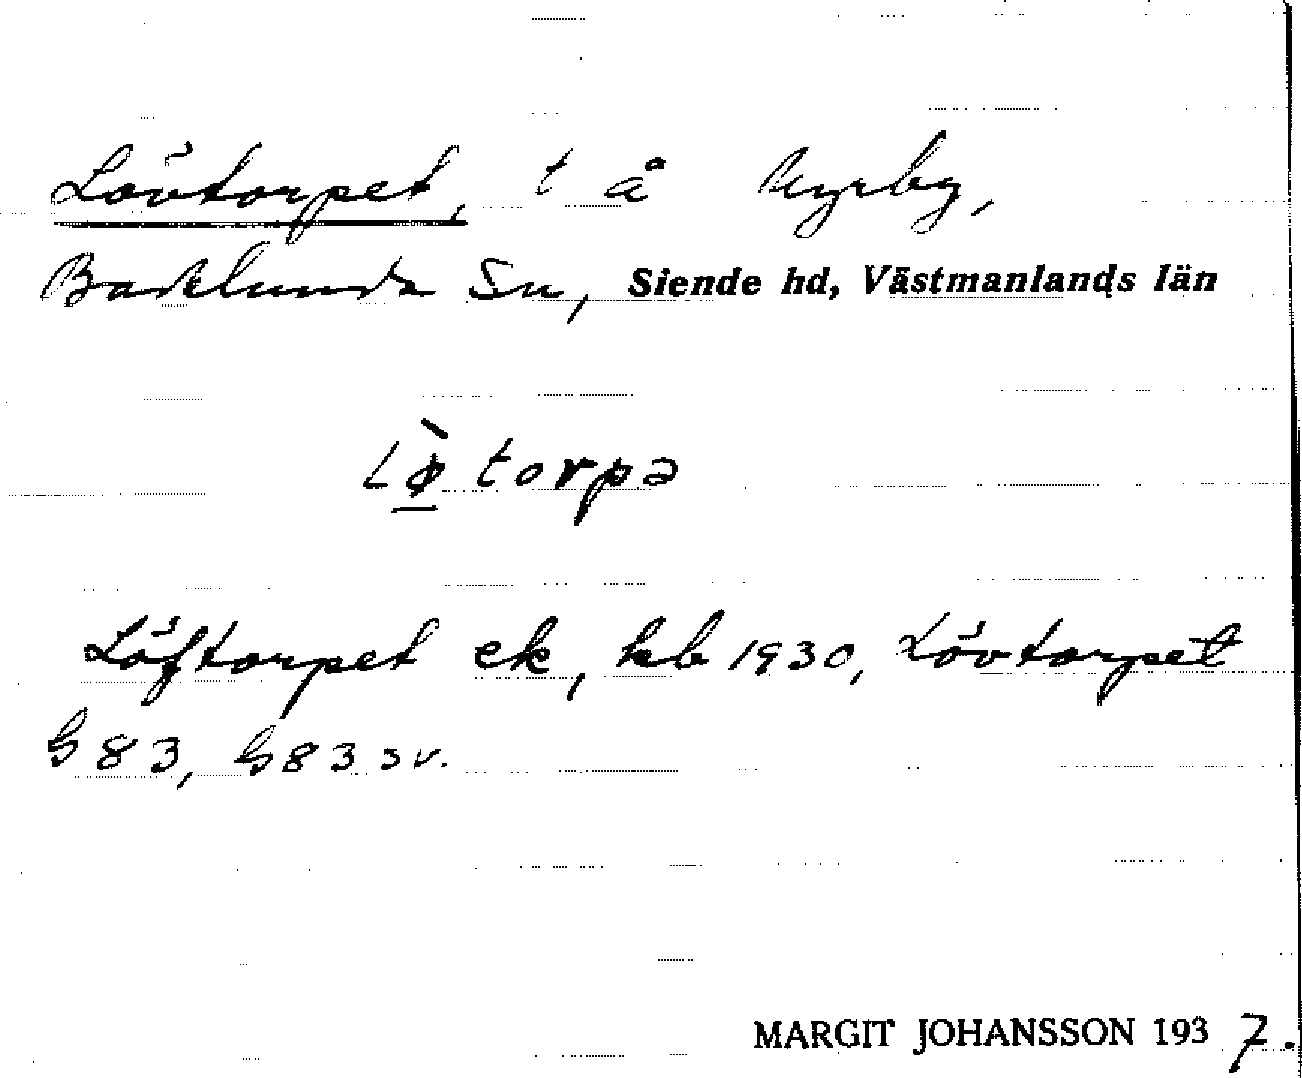 Lövtorpet, t å Myrby,
Badelunda Sn, Siende hd, Västmanlands län
Lø̀torpə
Löftorpet ek, kb 1930, Lövtorpet
G 83, G 83 sv.
MARGIT JOHANSSON 1937.